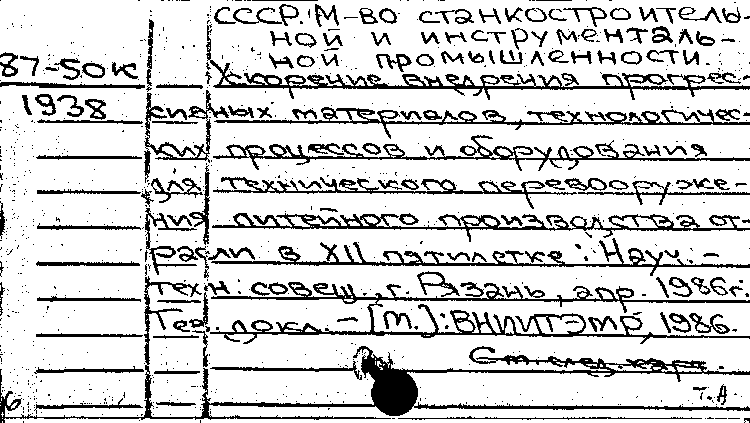 СССР. М-во станкостроитель-
ной и инструменталь-
ной промышленности.
87-50к Ускорение внедрения прогрес-
1938 сивных материалов, технологичес-
ких процессов и оборудования
для технического перевооруже-
ния литейного производства от-
расли в XII пятилетке: Науч.-
техн. совещ., г. Рязань, апр. 1986г.
Тез. докл. – [М.]: ВНИИТЭМР, 1986.
См. след. карт.
т. А
6